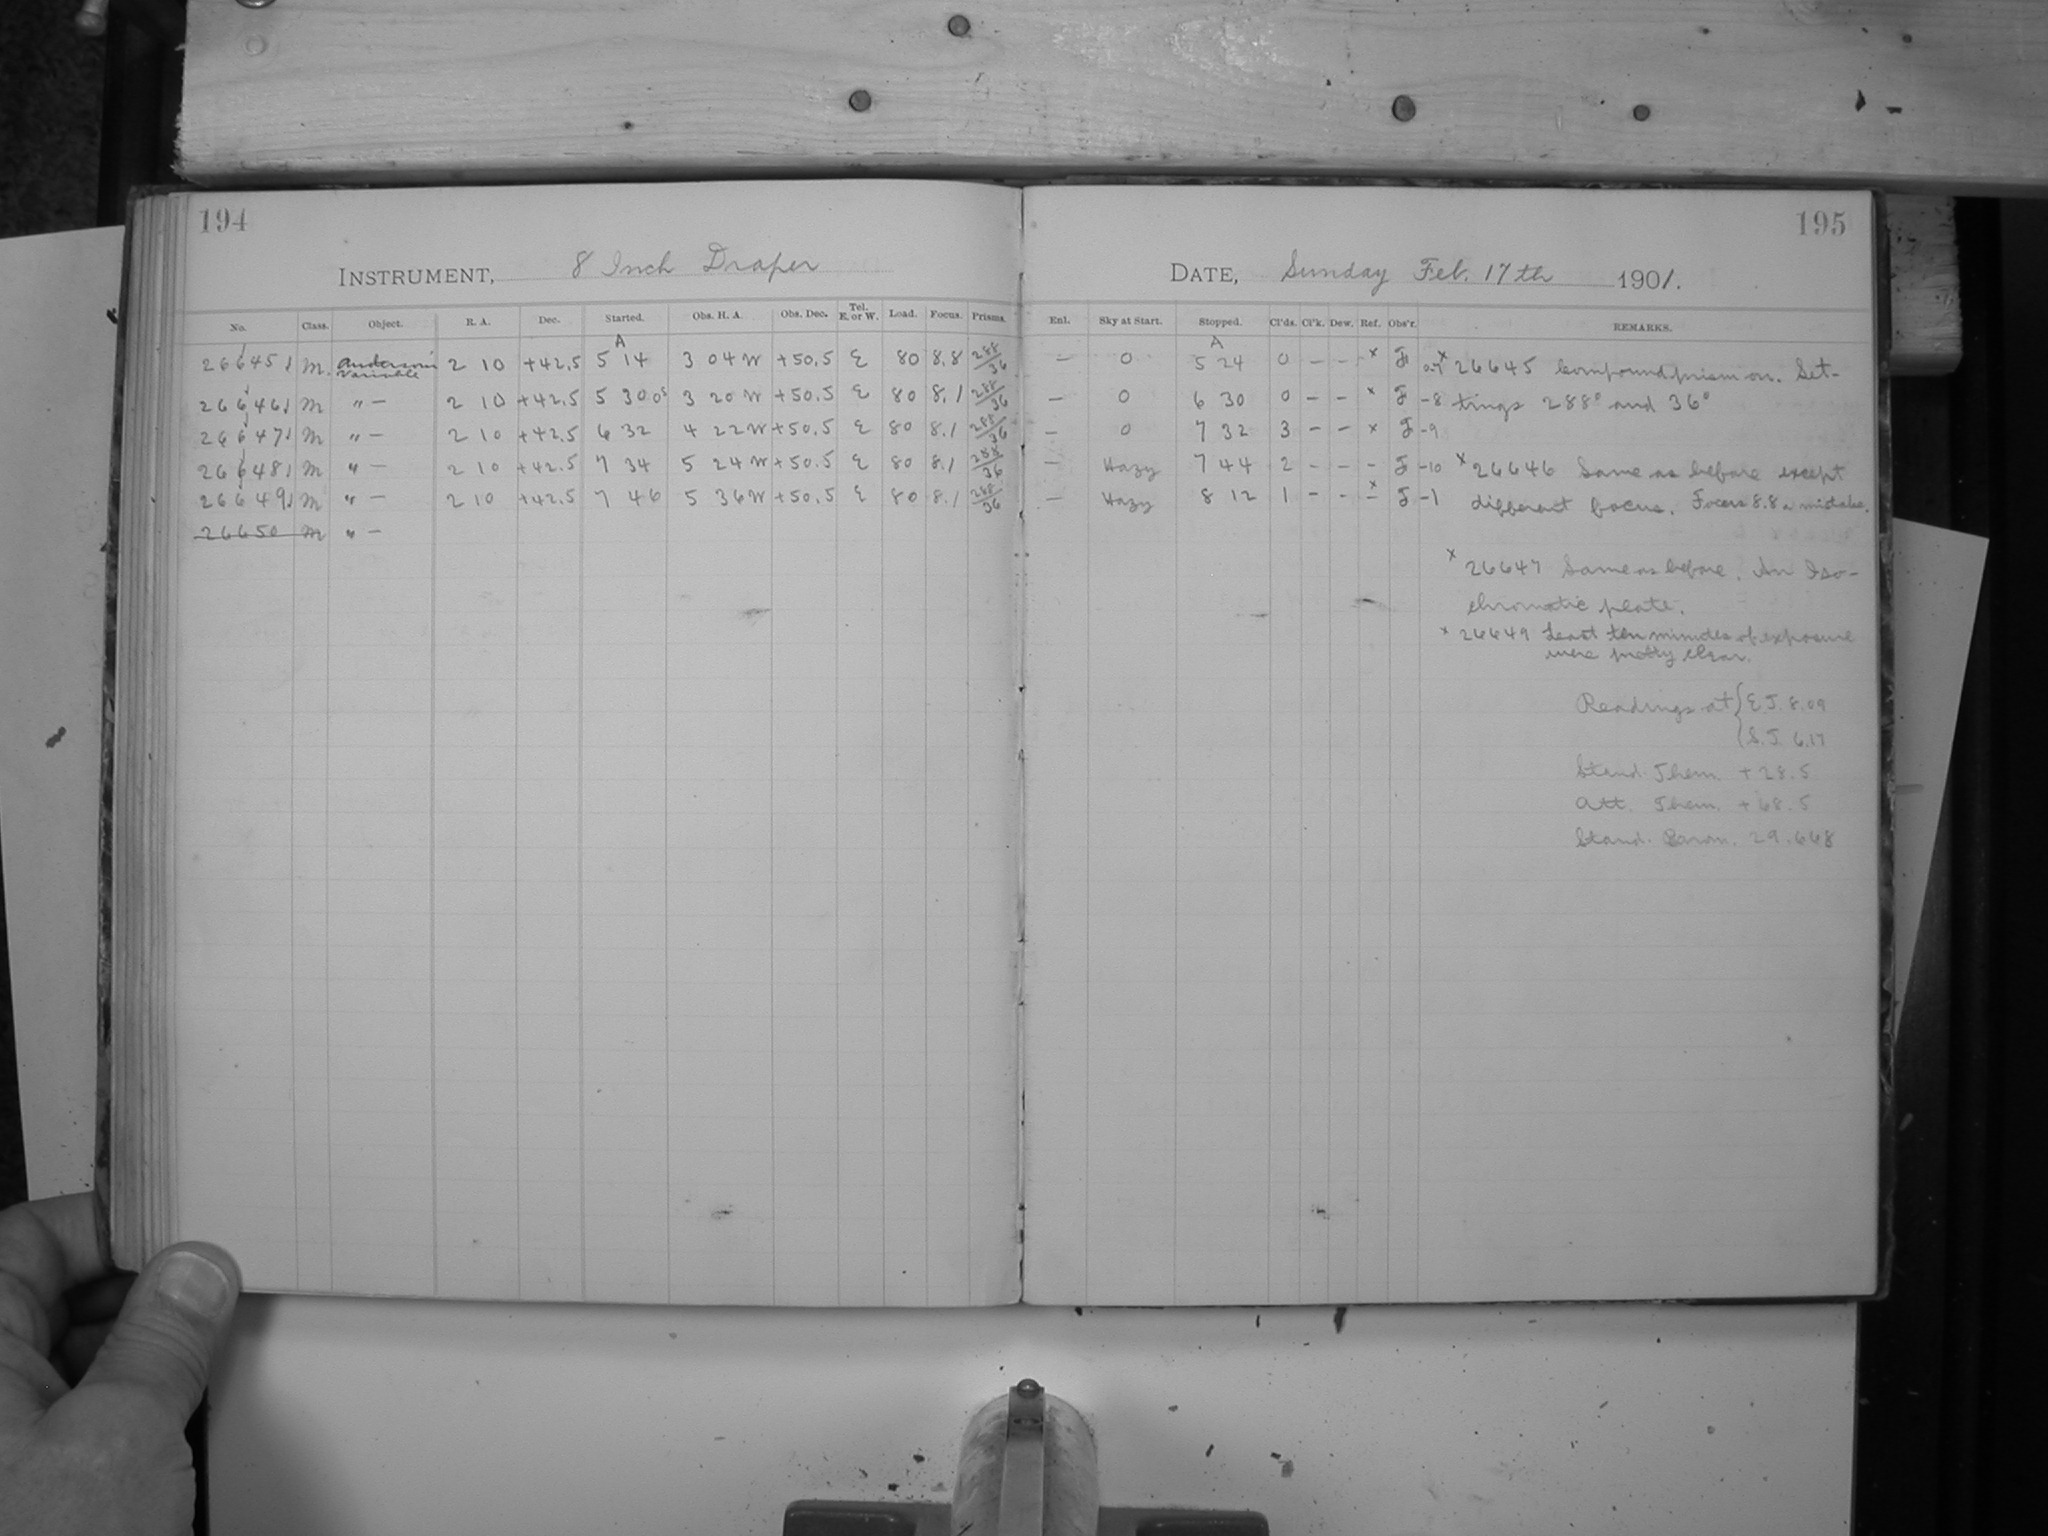 194
INSTRUMENT, 8 Inch Draper
No. Class. Object. R. A. Dec. Started. Obs. H. A. Obs. Dec. Tel. E. or W. Load. Focus. Prisms.
A
26645 M. Anderson's Variable 2 10 +42.5 5 14 3 04 W +50.5 E 80 8.8 288/36
26646 M " — 2 10 +42.5 5 30 05 3 20 W +50.5 E 80 8.1 288/36
26647 M " — 2 10 +42.5 6 32 4 22 W +50.5 E 80 8.1 288/36
26648 M " — 2 10 +42.5 7 34 5 24 W +50.5 E 80 8.1 288/36
26649 M " — 2 10 +42.5 7 46 5 36 W +50.5 E 80 8.1 288/36
26650 M " —
195
DATE, Sunday Feb. 17th 1901.
Enl. Sky at Start. Stopped. Cl'ds. Cl'k. Dew. Ref. Obs'r. REMARKS.
A
— 0 5 24 0 — — x F x 26645 Compound prism on. Set-
— 0 6 30 0 — — x F -8 tings 288° and 36°
— 0 7 32 3 — — x F -9
— Hazy 7 44 2 — — — F -10 x 26646 Same as before except
— Hazy 8 12 1 — — x F -1 different focus. Focus 8.8 a mistake.
x 26647 Same as before. An Iso-
chromatic plate.
x 26649 Least ten minutes of exposure
were pretty clear.
Readings at { E.T. 8.09
S.T. 6.17
Stand. Them. +28.5
Att. Them. +68.5
Stand. Barom. 29.668